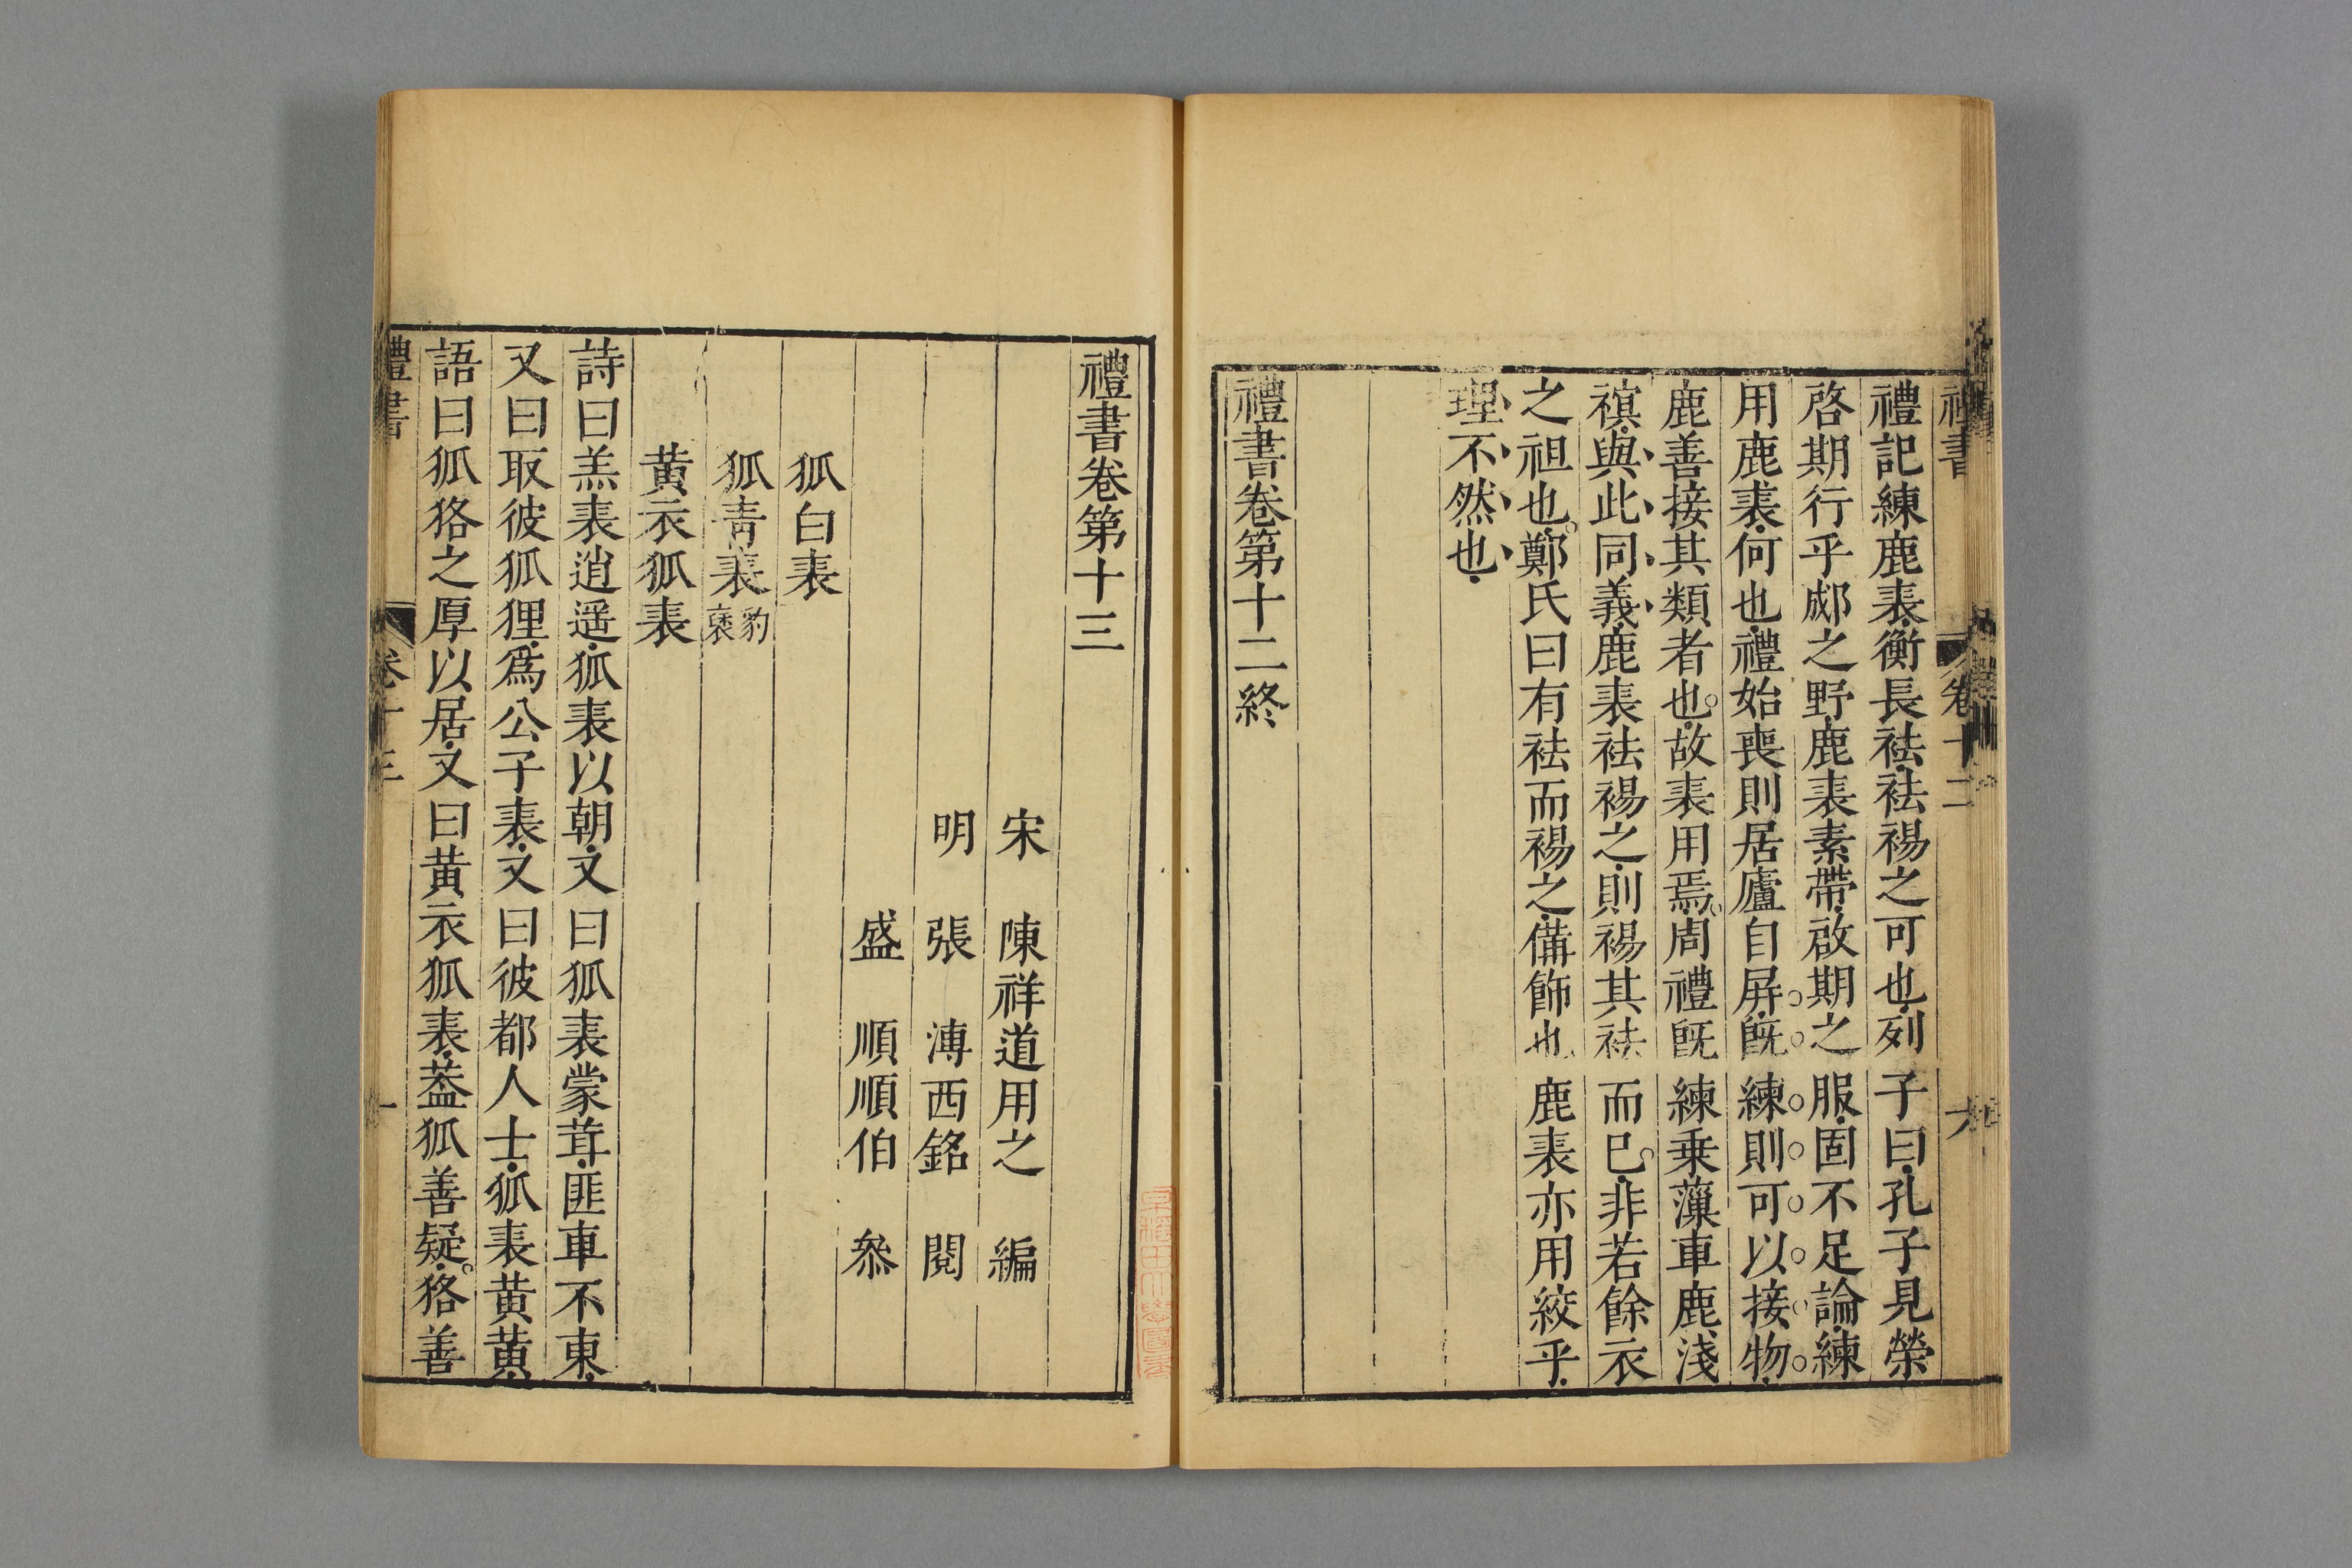 禮記練鹿裘衡長袪袪裼之可也列子曰孔子見榮
啓期行乎郕之野鹿裘素帶啟期之服固不足論練
用鹿裘何也禮始喪則居廬自屏旣練則可以接物
鹿善接其類者也故裘用焉周禮旣練乗薻車鹿淺
𧜀與此同義鹿裘袪裼之則裼其袪而已非若餘衣
之袒也鄭氏曰有袪而裼之備飾也鹿裘亦用絞乎
理不然也
禮書卷第十二終
禮書
卷十二
六
禮書卷第十三
宋 陳祥道用之 編
明 張溥西銘 閱
盛順順伯 叅
狐白裘
狐青裘豹褎
黃衣狐裘
詩曰羔裘逍遥狐裘以朝又曰狐裘蒙茸匪車不東
又曰取彼狐狸爲公子裘又曰彼都人士狐裘黃黃
語曰狐狢之厚以居又曰黃衣狐裘葢狐善疑狢善
禮書
卷十三
一